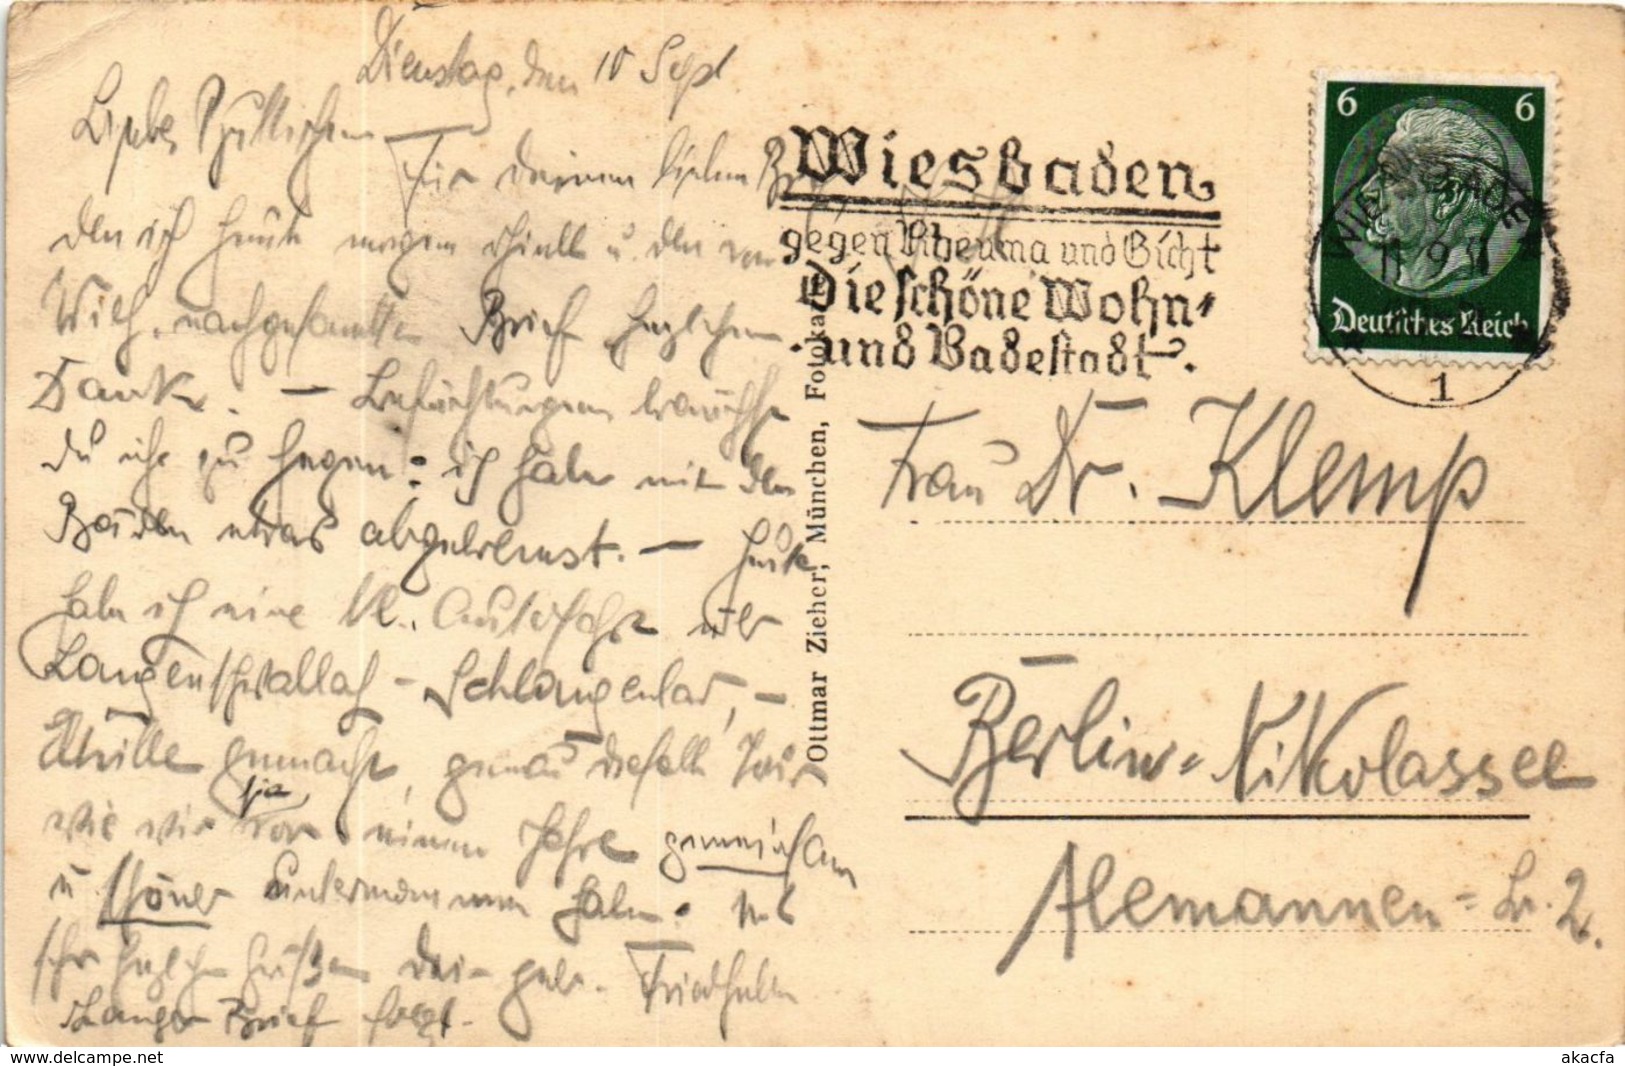 Dienstag, den 10 Sept
Liebes
Für deinen lieben
den ich heute morgen erhielt u. den von
Wieb. nachgesandten Brief herzlichen
Dank. — Befürchtungen brauchst
du nicht zu hegen: ich habe mit den
Bädern etwas abgebremst. — Heute
habe ich eine kl. Autofahrt über
Langenschwalbach - Schlangenbad, -
gemacht, genau dieselbe Tour
wie wir sie vor einem Jahre gemeinsam
u schöner unternommen haben. Mit
sehr herzlichen Grüßen Dein getr. Friedhelm
Langer Brief folgt.
Wiesbaden
gegen Rheuma und Gicht
Die schöne Wohn-
und Badestadt.
6 6
Deutsches Reich
WIESBADEN
11.9.
1
Ottmar Zieher, München, Fotokar
Frau Dr. Klemp
Berlin-Nikolassee
Alemannen-Str. 2.
akpool-free
www.delcampe.net
akacfa